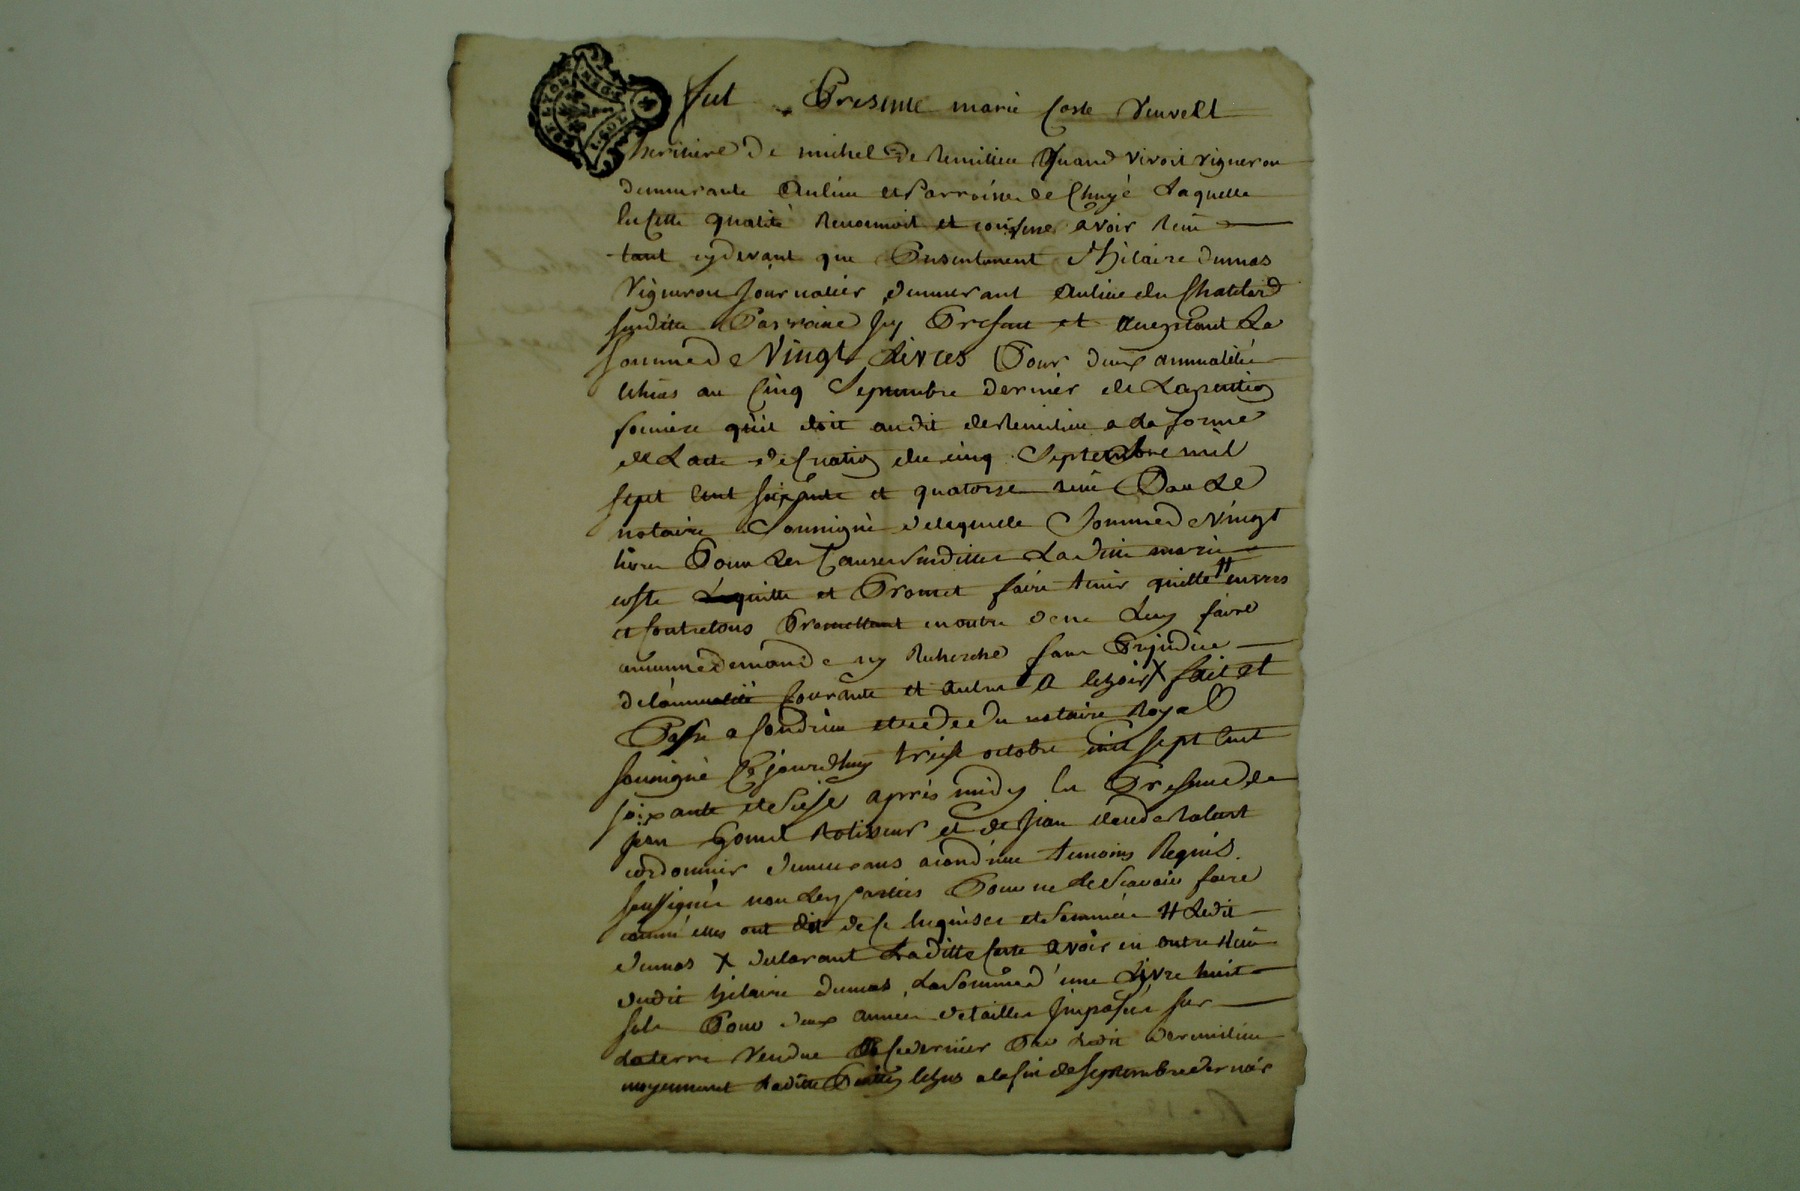 Fut Presente marie Coste veuve Et
heritiere de michel de Remilieu quand vivoit vigneron
demeurante Aulieu et Parroisse de Chuyé Laquelle
En Cette qualité Reconnoit et confesse avoir Reçu
tant cydevant que Presentement d'hilaire dumas
Vigneron Journalier demeurant Aulieu du Chatelard
susditte Parroisse Icy Present et Acceptant La
somme de Vingt Livres Pour deux annualités
Echues au Cinq Septembre dernier de La pention
fonciere qu'il doit audit de Remilieu a la forme
de Lacte de du cinq Septembre mil
sept Cent soixante et quatorze reçu Par Le
notaire Soussigné de laquelle Somme de Vingt
livres Pour Les Causes Susdittes Laditte marie
coste Lequitte et Promet faire tenir quitte # envers
et contre tous Promettant en outre de ne Luy faire
aucune demande ny Recherche sans Prejudice
de l'annualité Courante et autres A Echoir X fait et
Passé a Condrieu etude du notaire Royal
soussigné Cejourdhuy treize octobre mil sept Cent
soixante et seize après midy En Presence de
jean Rotisseur et de Jean claude
cordonnier demeurans acondrieu temoins Requis
soussignés non Les parties Pour ne Le Scavoir faire
comme elles ont dit de ce Enquises et Sommées # Ledit
dumas X declarant Laditte Coste avoir en outre Reçu
dudit hilaire dumas La Somme d'une Livre huit
sols Pour deux années de tailles Imposées sur
La terre Vendue Ce dernier Par Ledit de remilieu
moyennant Laditte Pention Echus a la fin de Septembre dernier